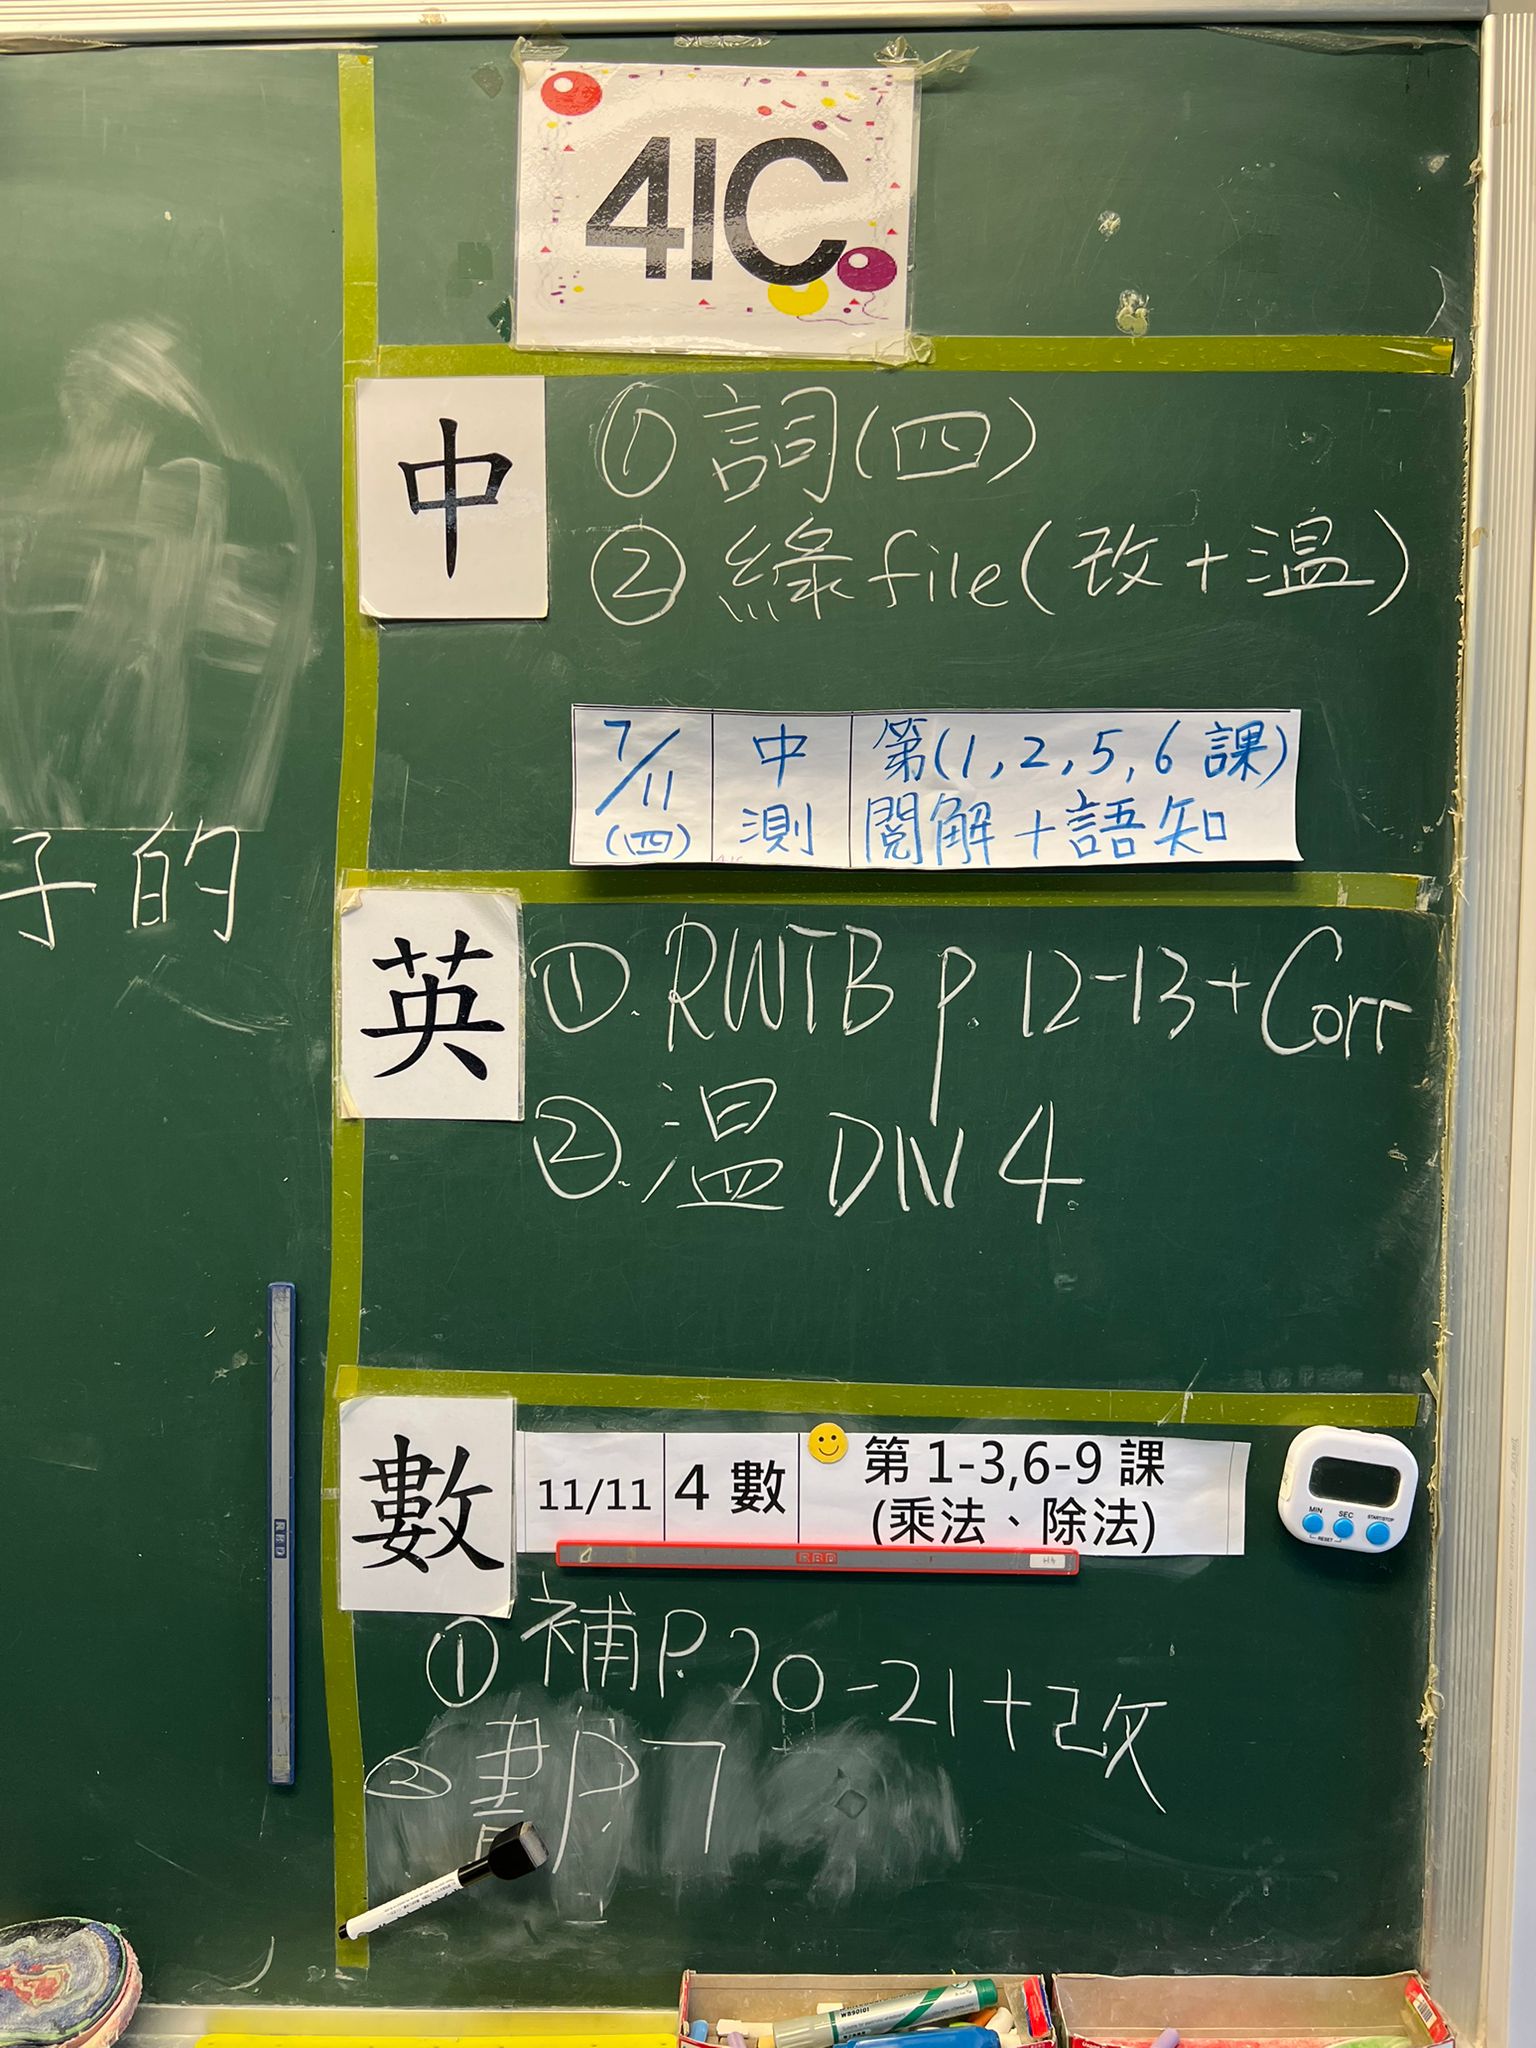 41C
子的
中
① 詞(四)
② 綠file(改+温)
7/11 (四) 中測 第(1,2,5,6課) 閱解+語知
英
①. RWTB p. 12-13 + Corr
②. 温 DN 4
數
11/11 4數 第 1-3,6-9 課
(乘法、除法)
MIN SEC START/STOP
RESET
RBD
RBD
① 補P.20-21+改
② 書P.7